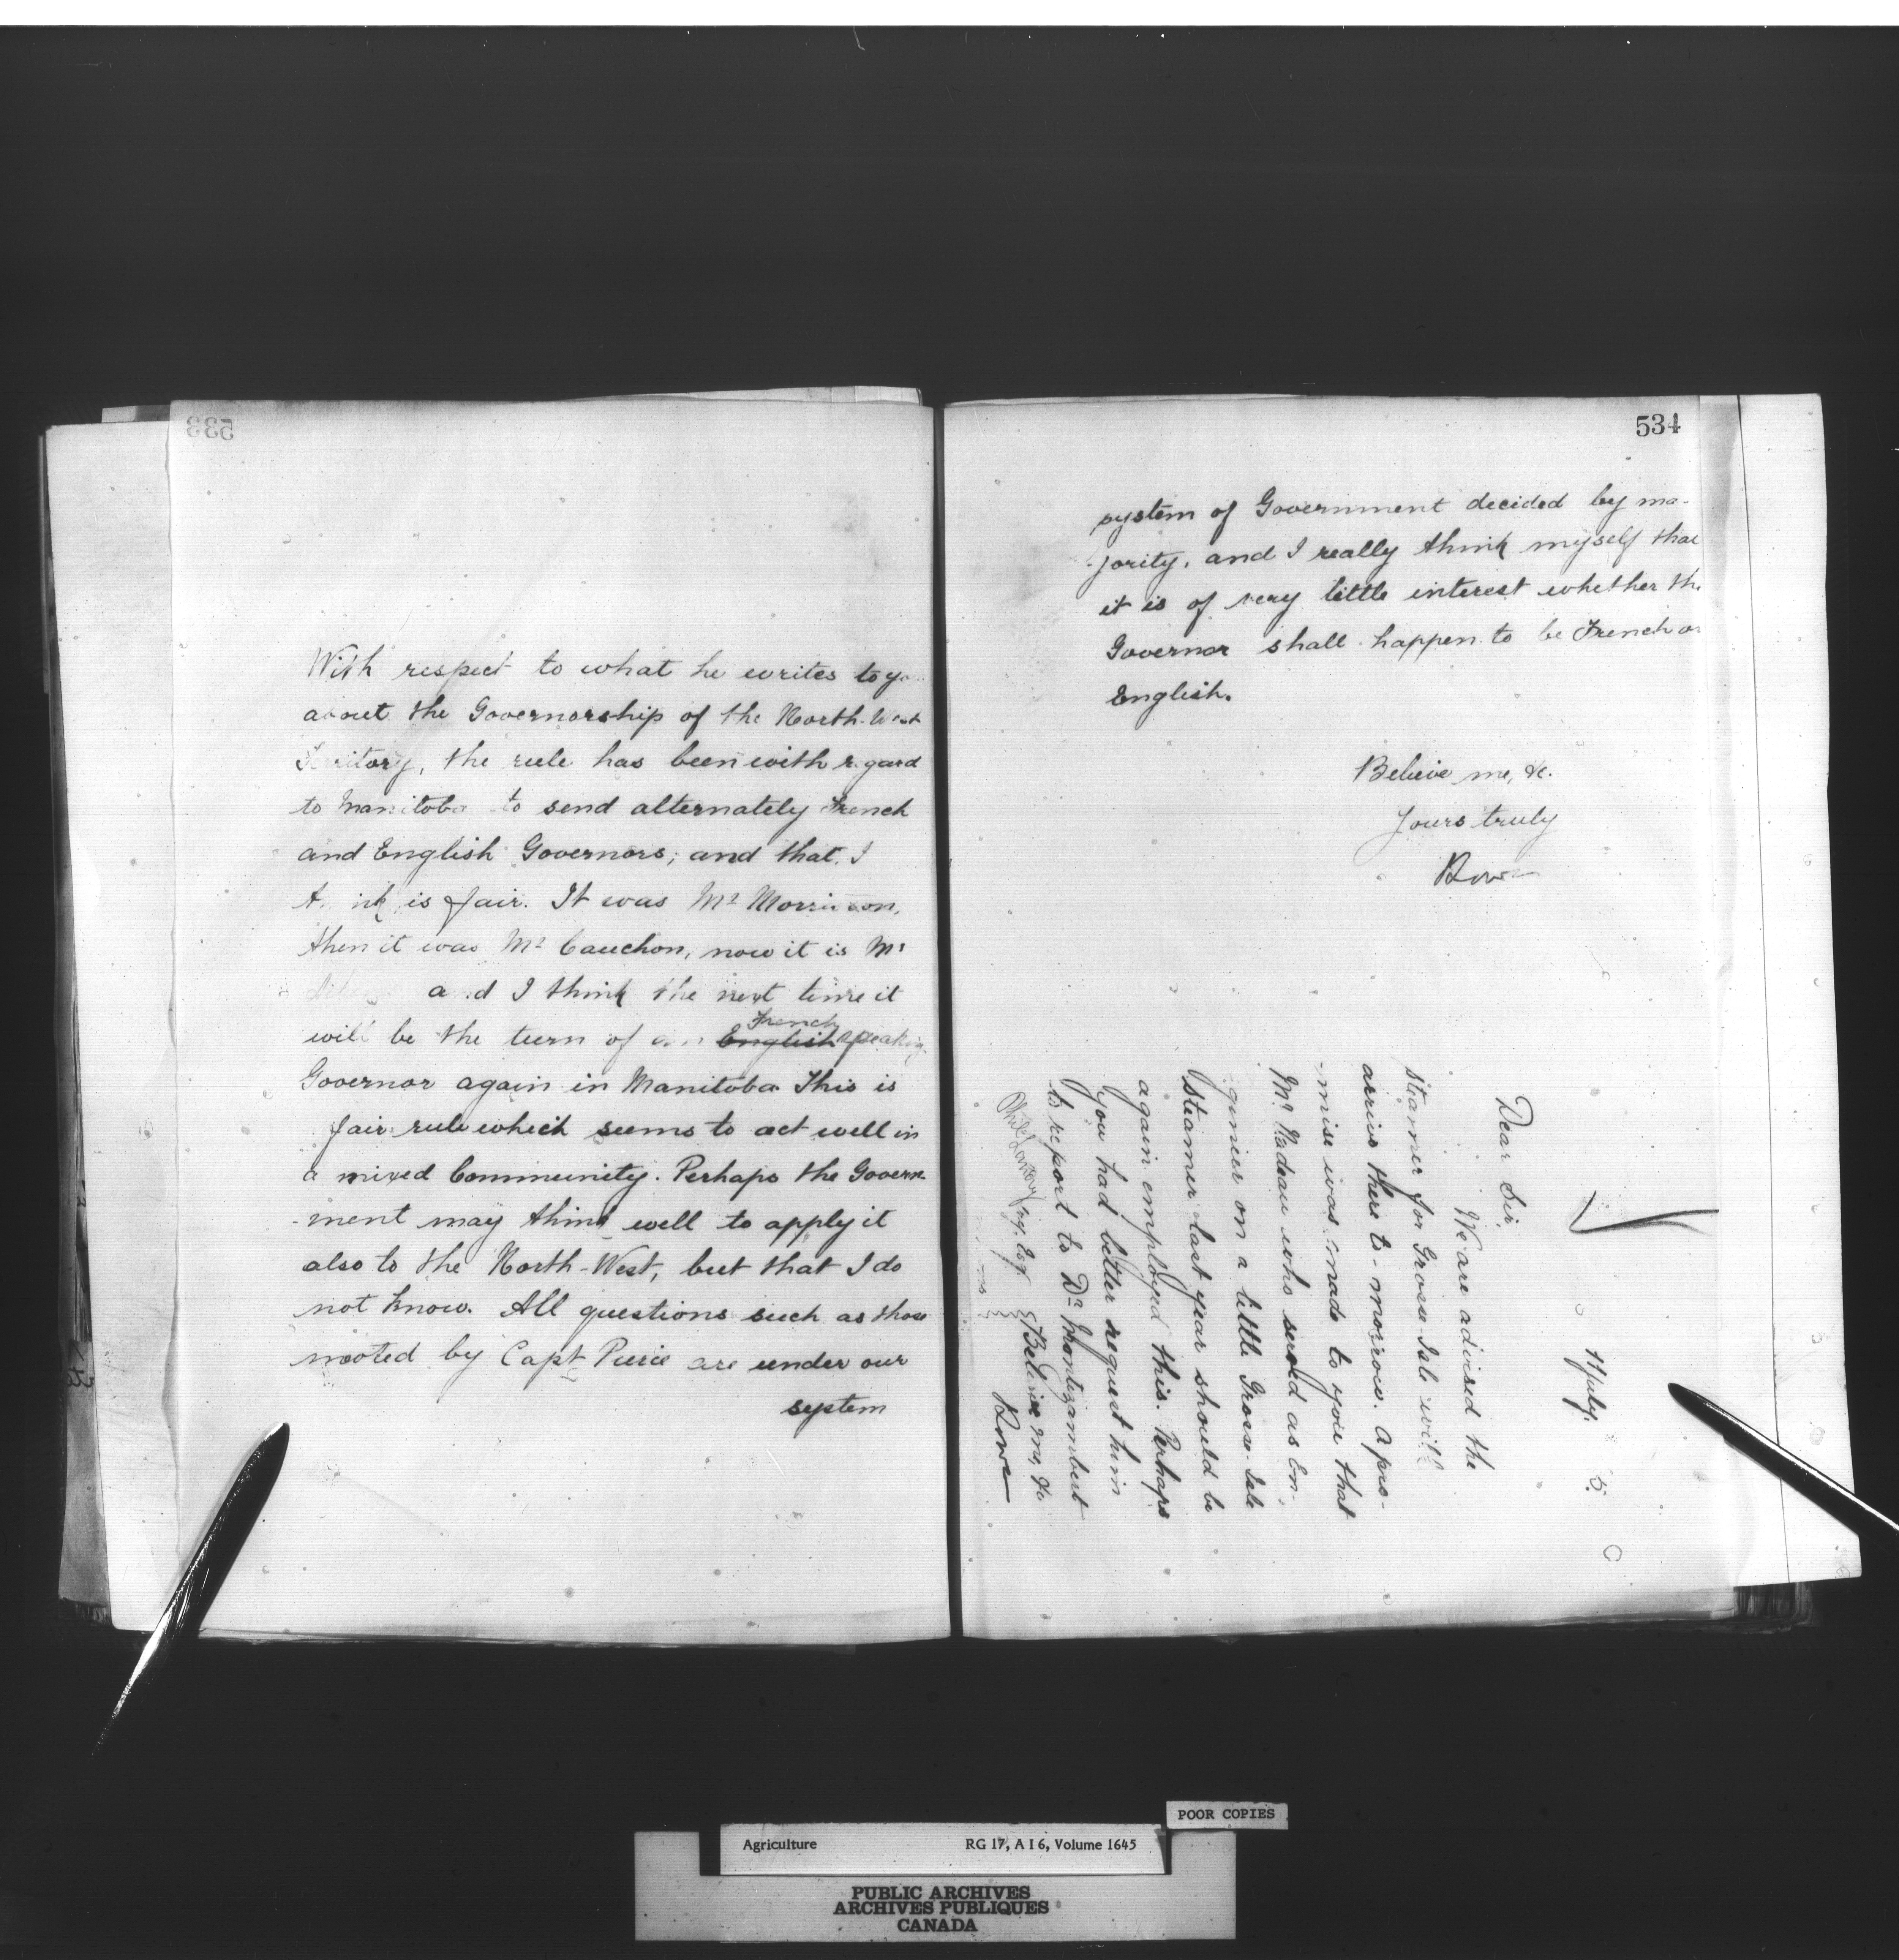 533
With respect to what he writes to
about the Governorship of the North-West
Territory, the rule has been with regard
to Manitoba to send alternately French
and English Governors; and that I
think is fair. It was Mr Morrison,
then it was Mr Cauchon, now it is Mr
and I think the next time it
will be the turn of an French speaking
Governor again in Manitoba This is
fair rule which seems to act well in
a mixed Community. Perhaps the Govern-
-ment may think well to apply it
also to the North-West, but that I do
not know. All questions such as those
mooted by Capt Pierce are under our
system
534
system of Government decided by ma-
-jority, and I really think myself that
it is of very little interest whether the
Governor shall happen to be French or
English.
Believe me, &c.
Yours truly
Rowe
July 5.
Dear Sir,
We are advised the
steamer for Grosse Isle will
arrive there to-morrow. A pro-
-mise was made to you that
Mr Nadeau who served as En-
-gineer on a little Grosse-Isle
steamer last year should be
again employed this. Perhaps
you had better request him
to report to Dr Montizambert
Phil Landry Esq.
Believe me, &c
Rowe
POOR COPIES
Agriculture RG 17, A I 6, Volume 1645
PUBLIC ARCHIVES
ARCHIVES PUBLIQUES
CANADA